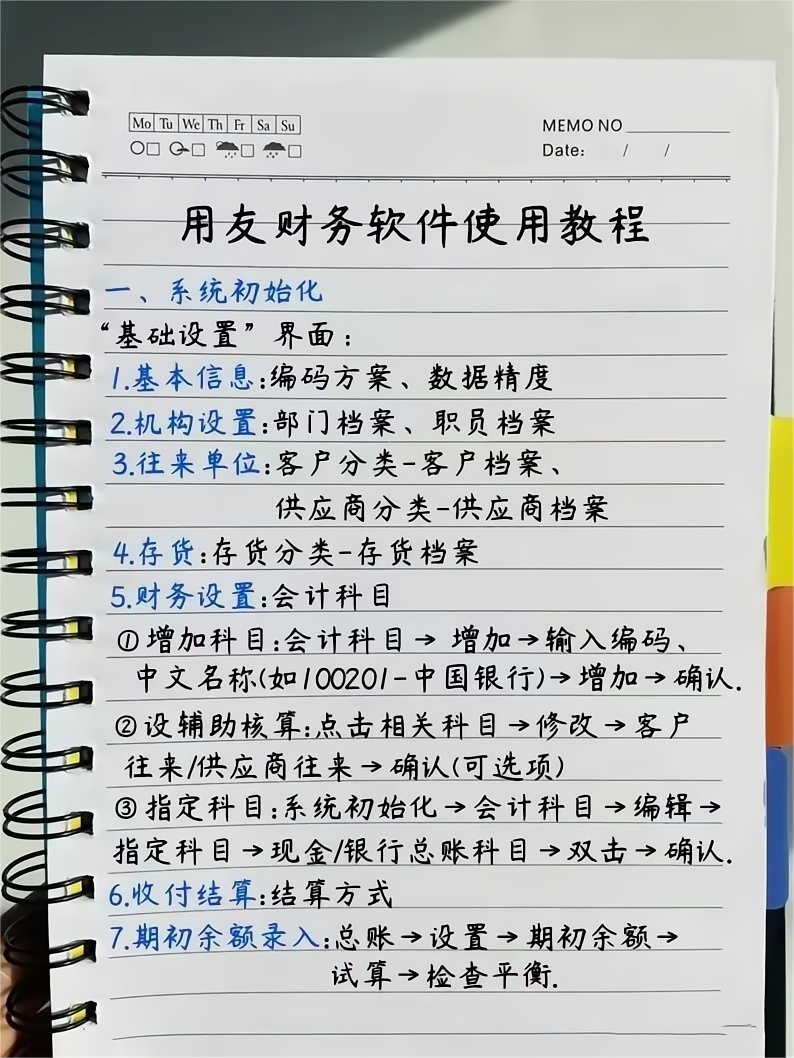 Mo Tu We Th Fr Sa Su
MEMO NO
Date: / /
用友财务软件使用教程
一、系统初始化
“基础设置”界面：
1.基本信息:编码方案、数据精度
2.机构设置:部门档案、职员档案
3.往来单位:客户分类-客户档案、
供应商分类-供应商档案
4.存货:存货分类-存货档案
5.财务设置:会计科目
①增加科目:会计科目→增加→输入编码、
中文名称(如100201-中国银行)→增加→确认.
②设辅助核算:点击相关科目→修改→客户
往来/供应商往来→确认(可选项)
③指定科目:系统初始化→会计科目→编辑→
指定科目→现金/银行总账科目→双击→确认.
6.收付结算:结算方式
7.期初余额录入:总账→设置→期初余额→
试算→检查平衡.